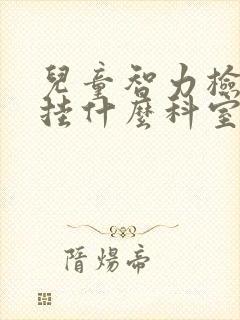 兒童智力檢
挂什麼科室
隋煬帝